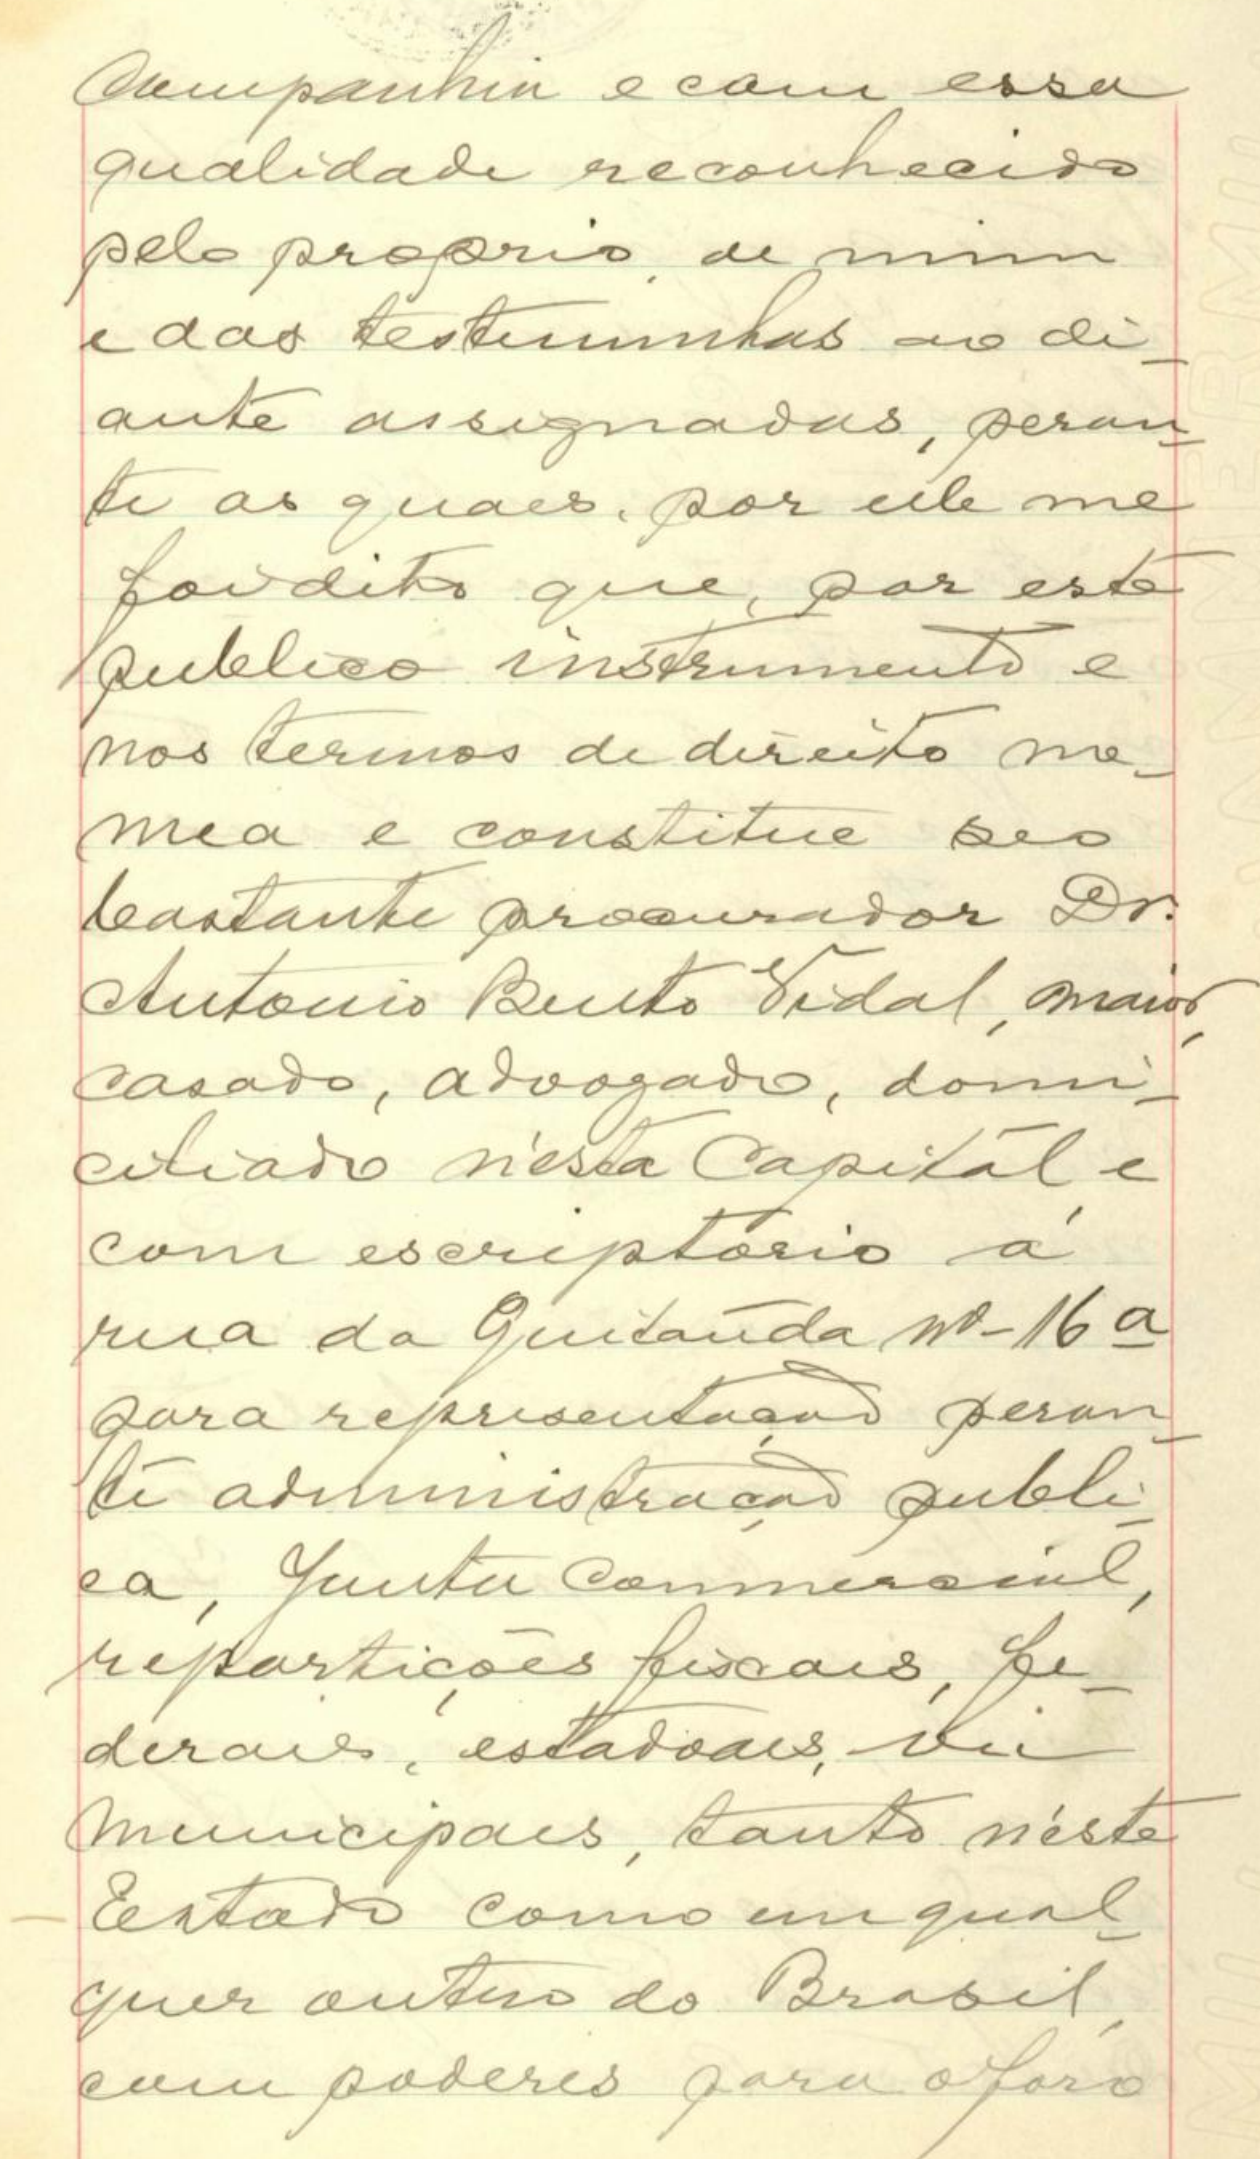 Companhia e com essa
qualidade reconhecido
pelo proprio, de mim
e das testemunhas ao di-
ante assignadas, peran-
te as quaes, por elle me
foi dito que, por este
publico instrumento e
nos termos de direito no-
mea e constitue seo
bastante procurador Dr.
Antonio Bento Vidal, maior,
casado, advogado, domi-
ciliado n'esta Capital, e
com escriptorio á
rua da Quitanda nº-16 a
para representação peran-
te administração publi-
ca, Junta Commercial,
repartições fiscaes, fe-
deraes, estadoaes, ou
municipaes, tanto n'este
Estado como em qual-
quer outro do Brasil,
com poderes para o foro